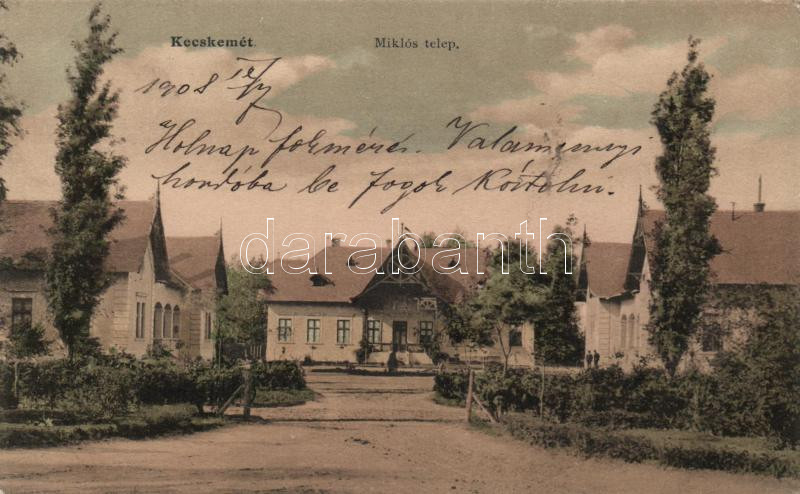 Kecskemét. Miklós telep.
1908 18/7
Holnap fokmérés. Valamennyi
hordóba be fogok kóstolni.
darabanth